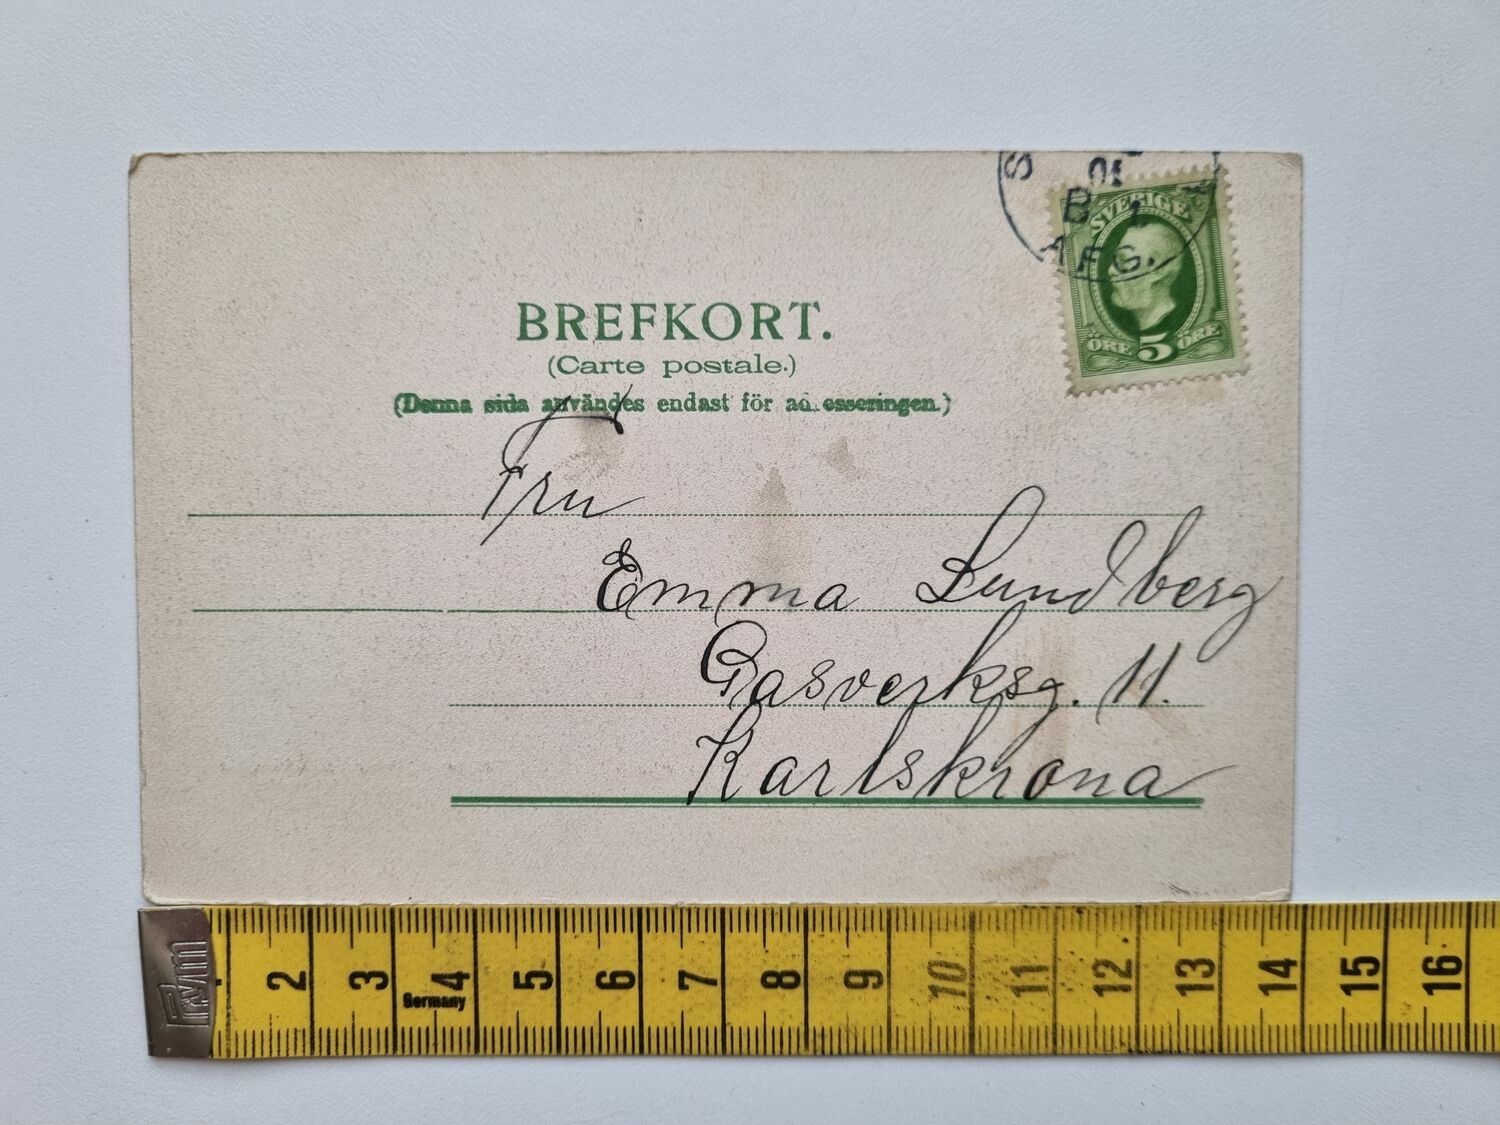 S
01
B 1
A F G.
SVERIGE
ÖRE 5 ÖRE
BREFKORT.
(Carte postale.)
(Denna sida användes endast för ad esseringen.)
Fru
Emma Lundberg
Gasverksg. 11.
Karlskrona
Prym
2 3 4 5 6 7 8 9 10 11 12 13 14 15 16
Germany